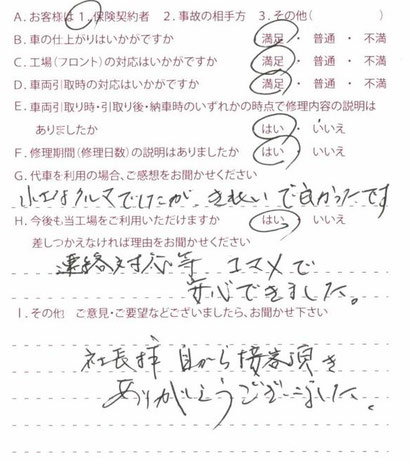 A.お客様は 1.保険契約者 2.事故の相手方 3.その他( )
B.車の仕上がりはいかがですか 満足 ・ 普通 ・ 不満
C.工場(フロント)の対応はいかがですか 満足 ・ 普通 ・ 不満
D.車両引取時の対応はいかがですか 満足 ・ 普通 ・ 不満
E.車両引取り時・引取り後・納車時のいずれかの時点で修理内容の説明は
ありましたか はい ・ いいえ
F.修理期間(修理日数)の説明はありましたか はい ・ いいえ
G.代車を利用の場合、ご感想をお聞かせください
小さなクルマでしたが、きれいで良かったです
H.今後も当工場をご利用いただけますか はい ・ いいえ
差しつかえなければ理由をお聞かせください
連絡対応等 コマメで
安心できました。
I.その他 ご意見・ご要望などございましたら、お聞かせ下さい
社長様 自から接客頂き
ありがとうございました。